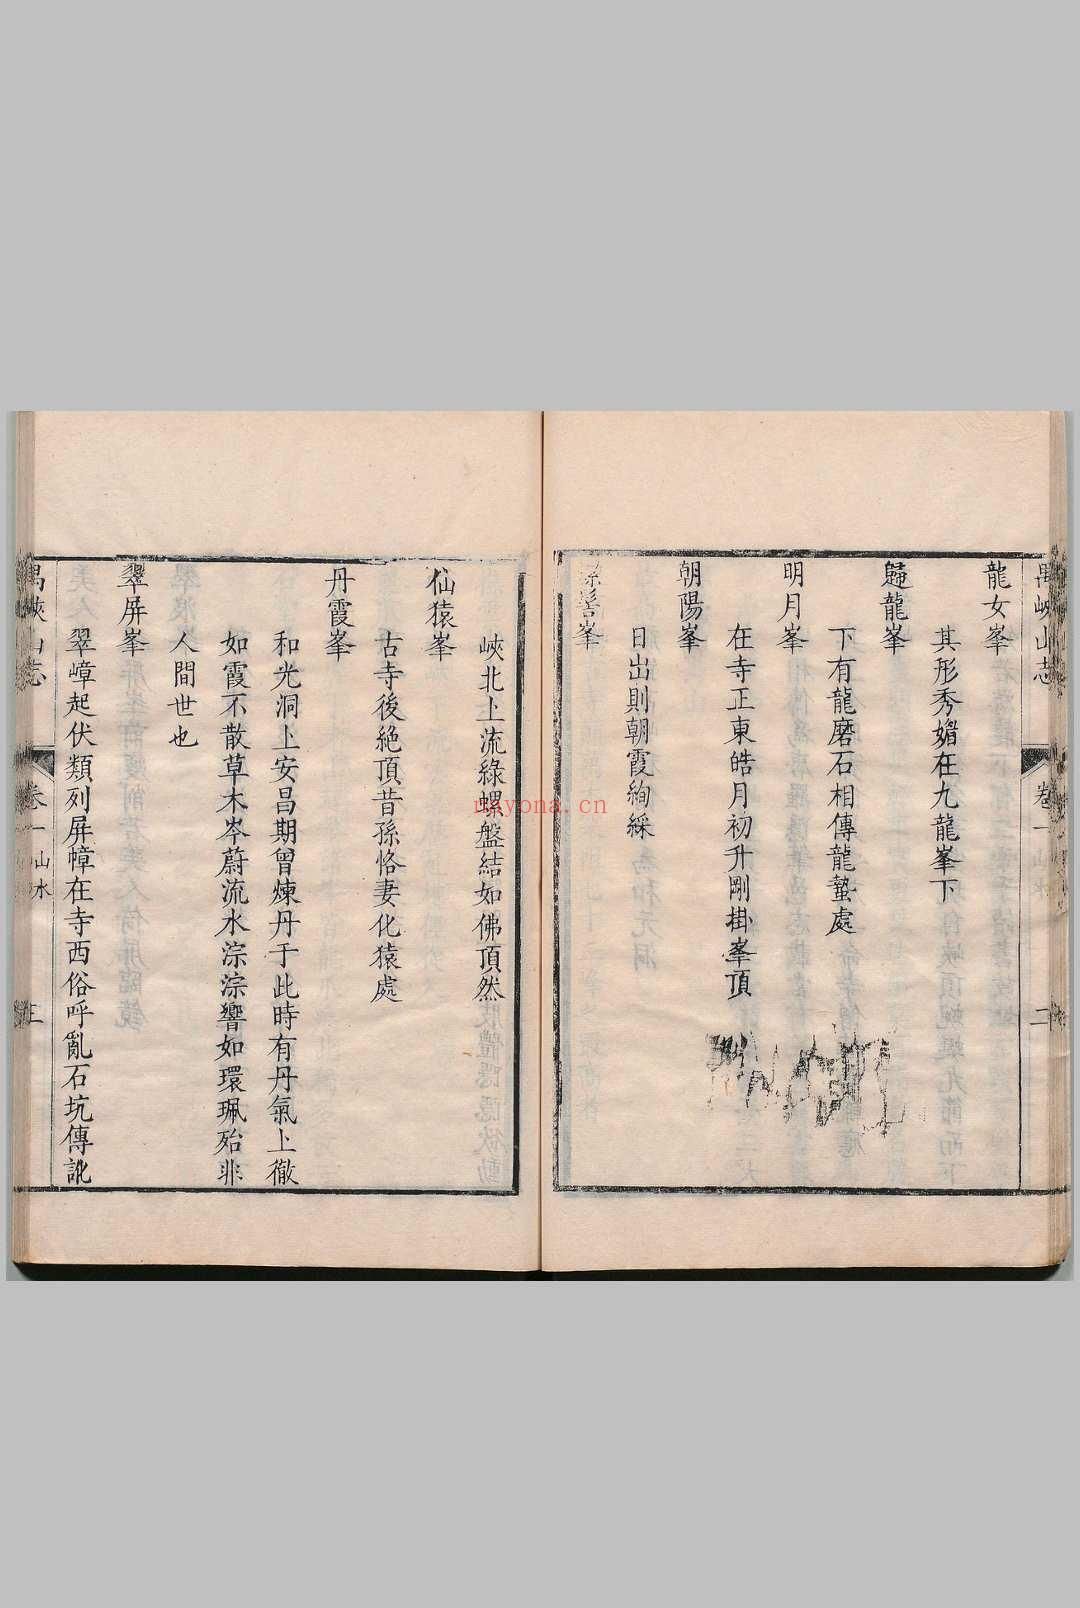 禺峽山志
卷一
山水
二
龍女峯
其形秀媚在九龍峯下
歸龍峯
下有龍磨石相傳龍蟄處
明月峯
在寺正東皓月初升剛掛峯頂
朝陽峯
日出則朝霞絢綵
髻峯
峽北上流綠螺盤結如佛頂然
仙猿峯
古寺後絶頂昔孫恪妻化猿處
丹霞峯
和光洞上安昌期曾煉丹于此時有丹氣上徹
如霞不散草木岑蔚流水淙淙響如環珮殆非
人間世也
翠屏峯
翠嶂起伏類列屏幛在寺西俗呼亂石坑傳訛
禺峽山志
卷一
山水
三
nayona.cn